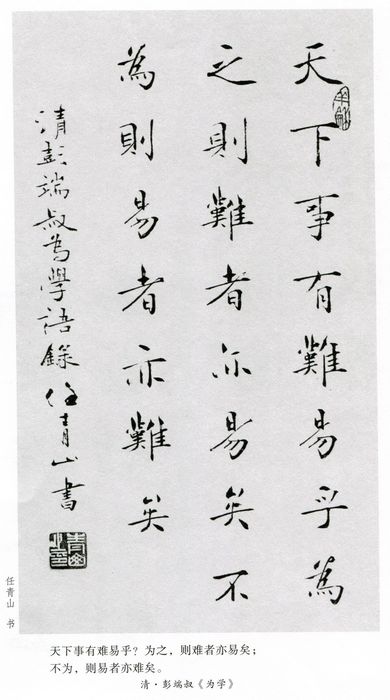 天下事有難易乎為
之則難者亦易矣不
為則易者亦難矣
清彭端叔為學語錄任青山書
任青山 书
天下事有难易乎？为之，则难者亦易矣；
不为，则易者亦难矣。
清·彭端叔《为学》